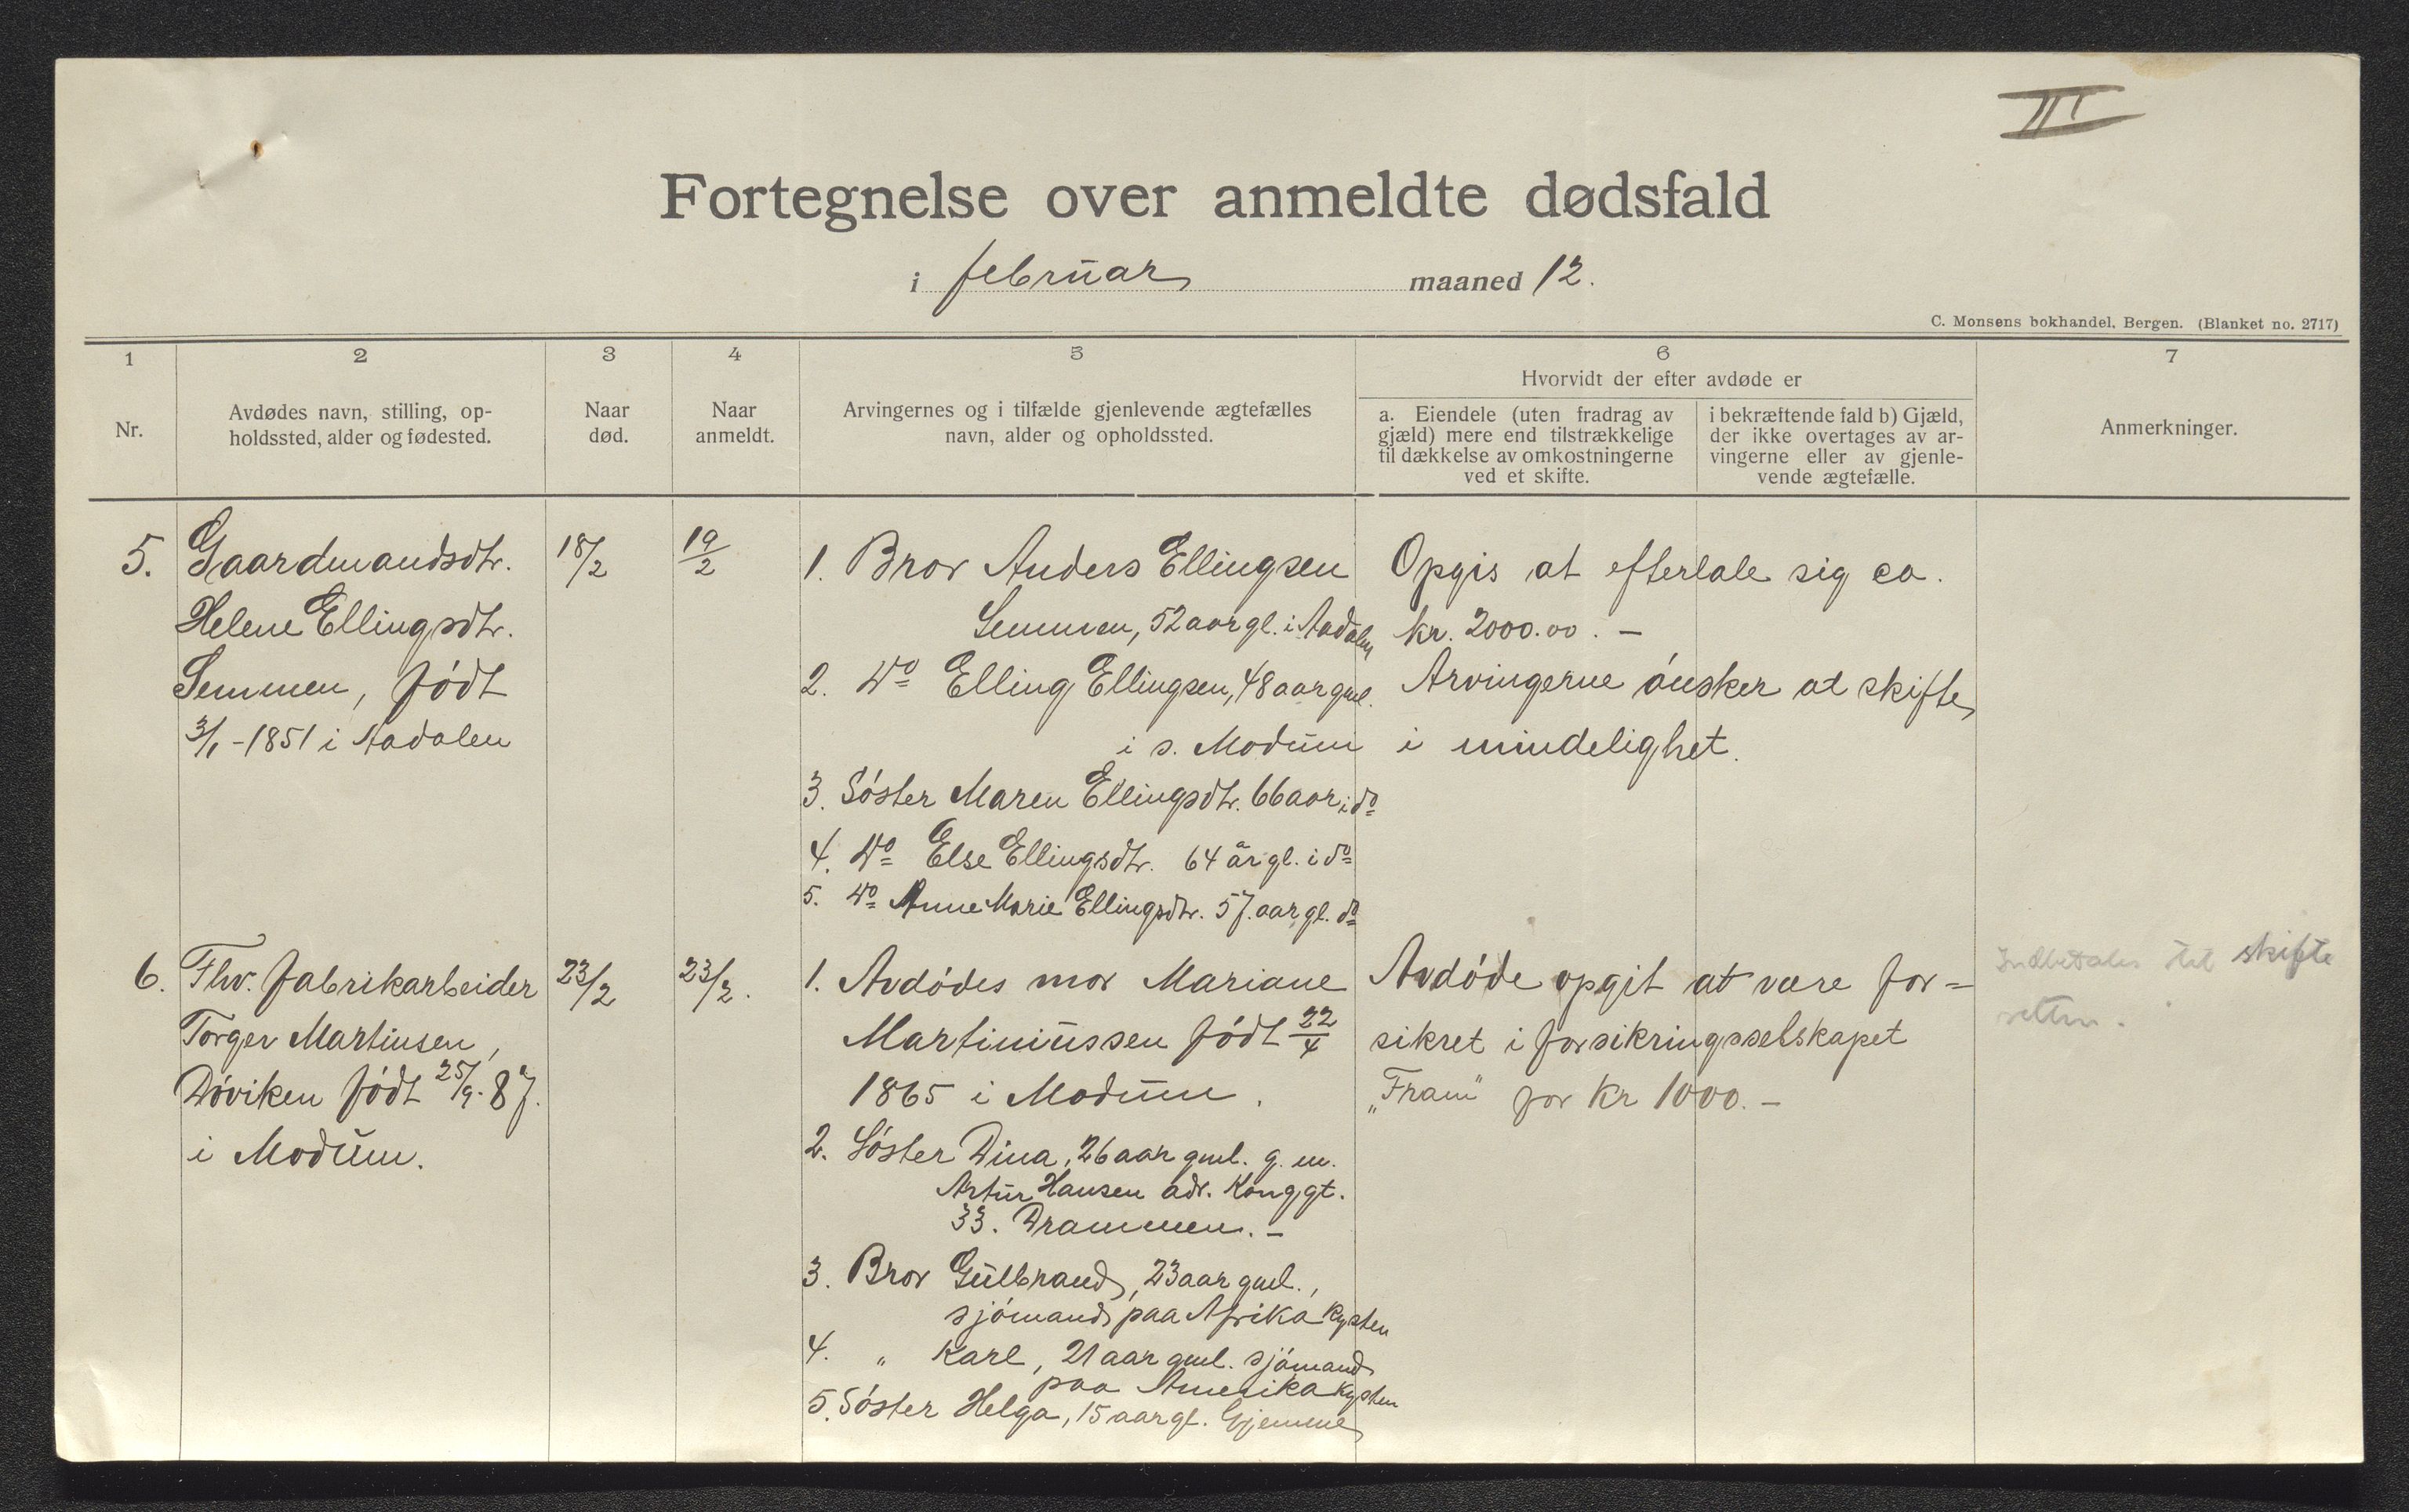 III
Fortegnelse over anmeldte dødsfald
i februar maaned 12.
C. Monsens bokhandel, Bergen. (Blanket no. 2717)
1
2
3
4
5
6
7
Nr.
Avdødes navn, stilling, op-
holdssted, alder og fødested.
Naar
død.
Naar
anmeldt.
Arvingernes og i tilfælde gjenlevende ægtefælles
navn, alder og opholdssted.
Hvorvidt der efter avdøde er
a. Eiendele (uten fradrag av
gjæld) mere end tilstrækkelige
til dækkelse av omkostningerne
ved et skifte.
i bekræftende fald b) Gjæld,
der ikke overtages av ar-
vingerne eller av gjenle-
vende ægtefælle.
Anmerkninger.
5.
Gaardmandsdtr.
Helene Ellingsdtr.
Semmen, født
3/1-1851 i Aadalen
18/2
19/2
1. Bror Anders Ellingsen
Semmen, 52 aar gl. i Aadalen
2. Do Elling Ellingsen, 48 aar gml.
i s. Modum
3. Søster Maren Ellingsdtr. 66 aar i do
4. Do Else Ellingsdtr. 64 år gl. i do
5. Do Anne Marie Ellingsdtr. 57 aar gl. do
Opgis at efterlale sig ca.
kr. 2000.00. -
Arvingerne ønsker at skifte
i mindelighet.
6.
Fhv. fabrikarbeider
Torger Martinsen,
Døviken født 25/9-87.
i Modum.
23/2
23/2.
1. Avdødes mor Mariane
Martiniussen født 22/4
1865 i Modum.
2. Søster Dina, 26 aar gml. g. m.
Artur Hansen adr. Konggt.
33. Drammen. -
3. Bror Gulbrand, 23 aar gml.,
sjømand paa Afrika kysten
4. " Karl, 21 aar gml. sjømand
paa Amerika kysten
5. Søster Helga, 15 aar gl. hjemme
Avdøde opgit at være for=
sikret i forsikringsselskapet
"Fram" for Kr 1000. -
Indbetales til skifte
retten.